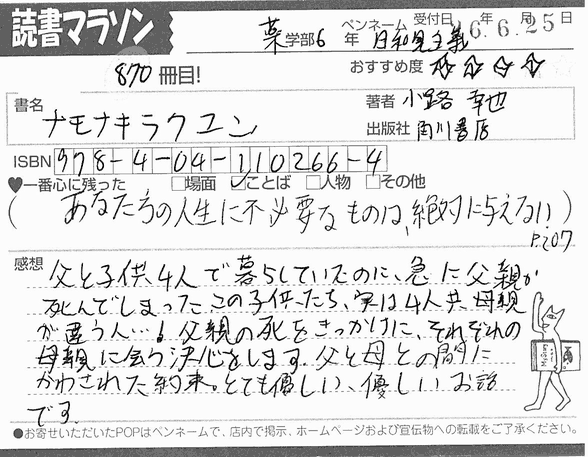 読書マラソン
薬学部6年 ペンネーム 日和見主義 受付日 '16年6月25日
870冊目!
おすすめ度 ☆☆☆☆
書名 ナモナキラクエン
著者 小路 幸也
出版社 角川書店
ISBN 978-4-04-110266-4
♥一番心に残った □場面 ☑ことば □人物 □その他
(あなた方の人生に不必要なものは、絶対に与えない)
P.207
感想
父と子供、4人で暮らしていたのに、急に父親が
死んでしまった。この子供たち、実は4人共、母親
が違う人…! 父親の死をきっかけに、それぞれの
母親に会う決心をします。父と母との間に
かわされた約束。とても優しい、優しいお話
です。
●お寄せいただいたPOPはペンネームで、店内で掲示、ホームページおよび宣伝物への転載をご了承ください。